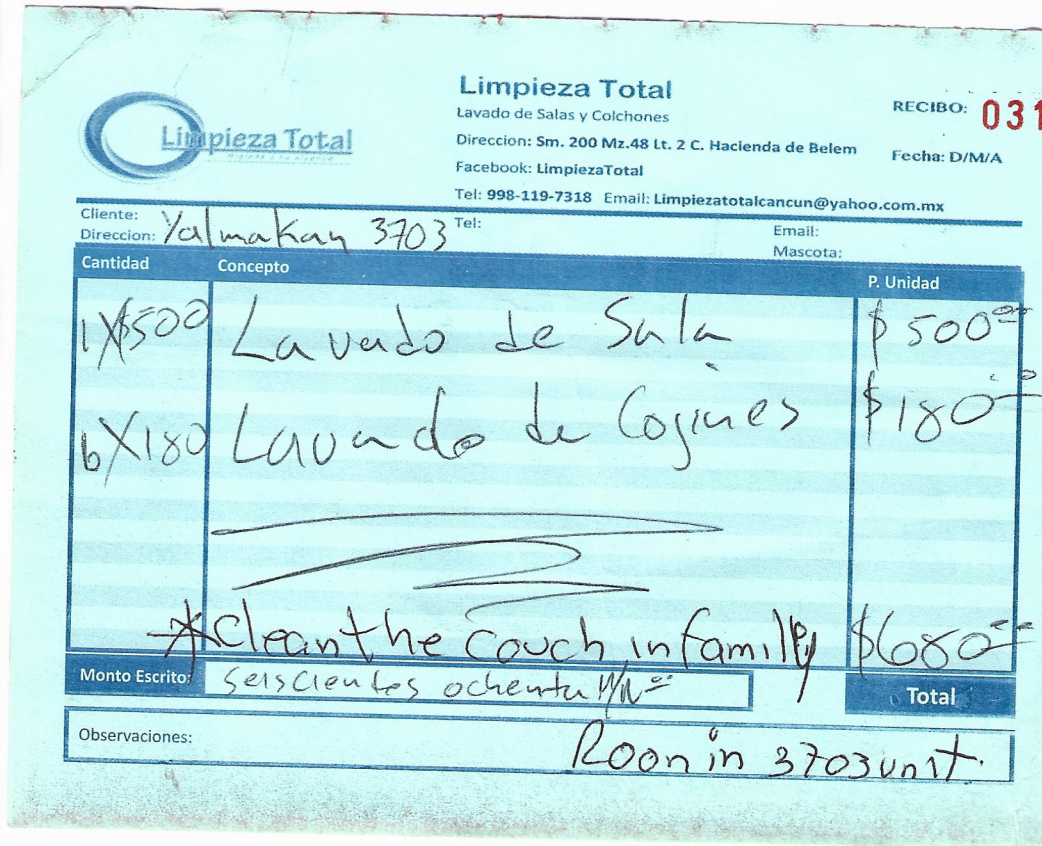 Limpieza Total
Lavado de Salas y Colchones
Direccion: Sm. 200 Mz.48 Lt. 2 C. Hacienda de Belem
Facebook: LimpiezaTotal
Tel: 998-119-7318 Email: Limpiezatotalcancun@yahoo.com.mx
RECIBO: 031
Fecha: D/M/A
Limpieza Total
Cliente:
Direccion: Yalmakan 3703
Tel:
Email:
Mascota:
Cantidad Concepto P. Unidad
1X$500 Lavado de Sala $500.00
6X180 Lavado de Cojines $180.00
*Clean the couch in familly $680.00
Monto Escrito: Seiscientos ochenta M/N Total
Observaciones: Roon in 3703 unit.